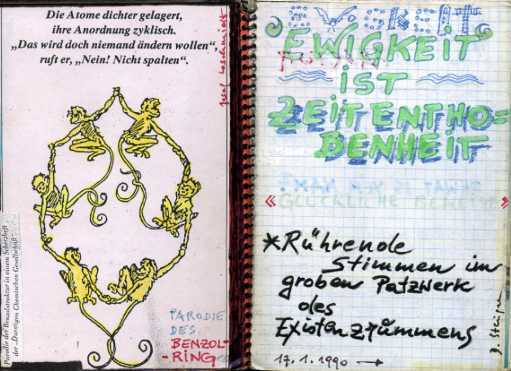 Die Atome dichter gelagert,
ihre Anordnung zyklisch.
„Das wird doch niemand ändern wollen“
ruft er, „Nein! Nicht spalten“.
Parodie der Benzolstruktur in einem Scherzheft
der „Durstigen Chemischen Gesellschaft“
PARODIE
DES
BENZOL-
-RING
"EWIGKEIT
IST
ZEITENTHO=
BENHEIT
«GLÜCKLICHE
*Rührende
Stimmen im
groben Patzwerk
des
Existenzrümmens
17.1.1990 →